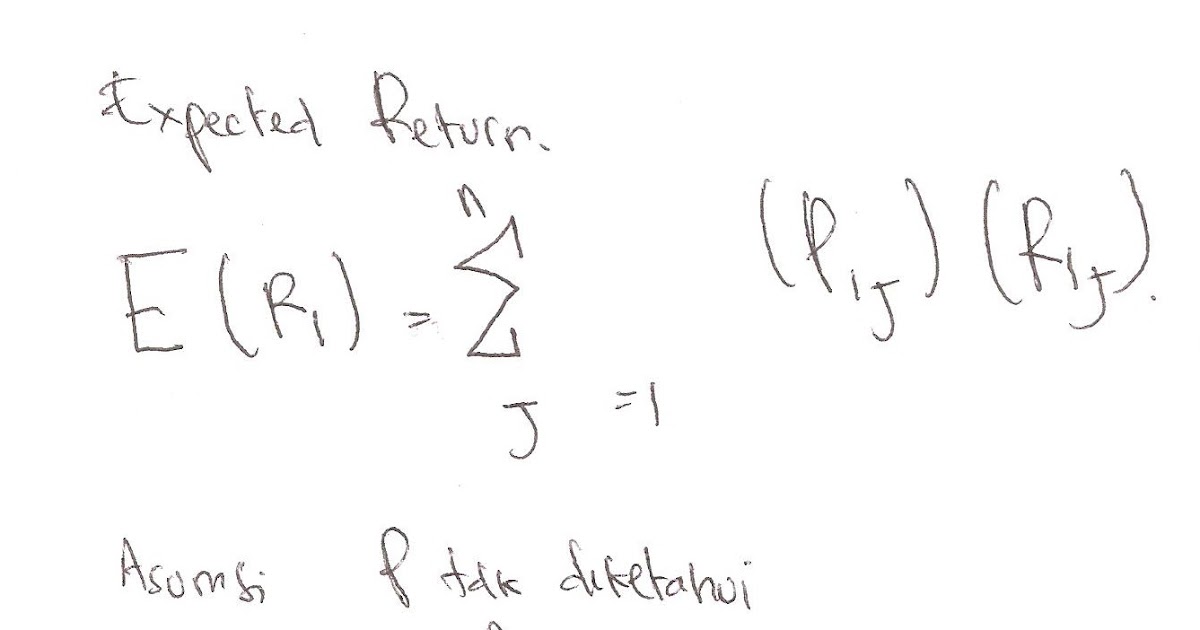 Expected Return.
E (Ri) = n ∑ J = 1 (Pij) (Rij).
Asumsi P tdk diketahui